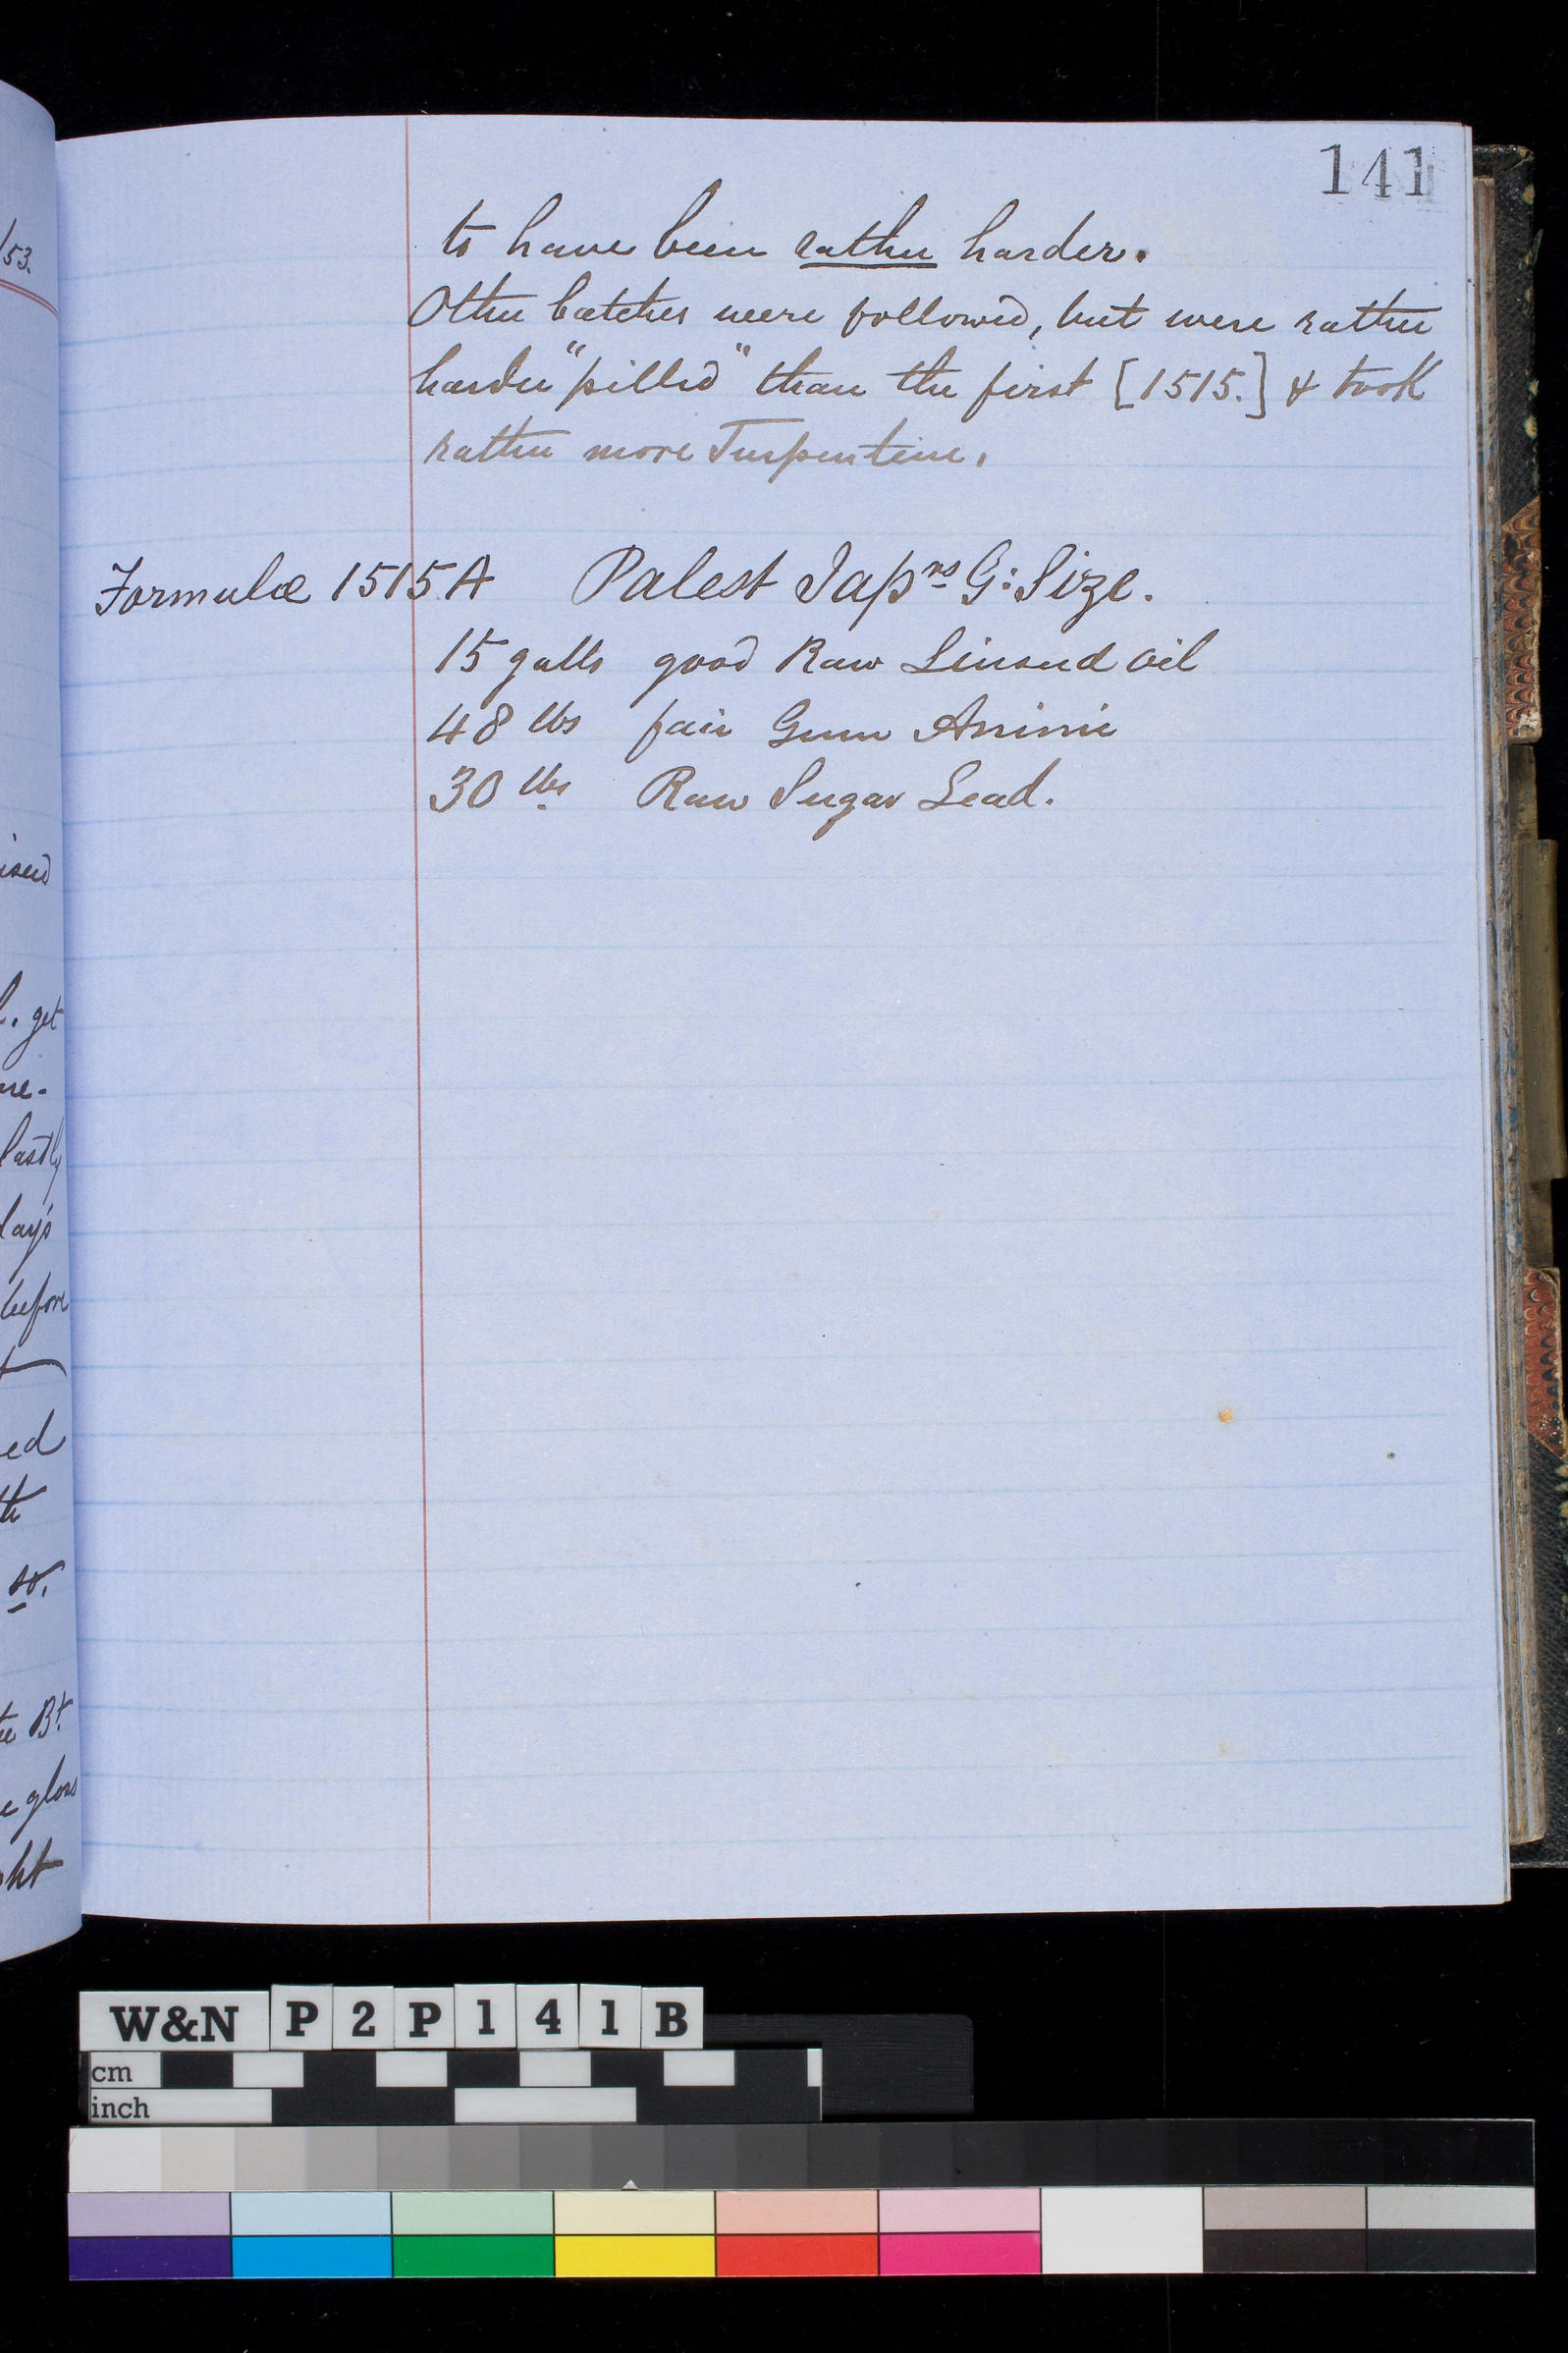 141
to have been rather harder.
Other batches were followed, but were rather
harder "pilled" than the first [1515.] & took
rather more Turpentine.
Formulæ 1515A Palest Japns G: Size.
15 galls good Raw Linseed oil
48 lbs fair Gum Animi
30 lbs Raw Sugar Lead.
/53.
. get
re-
lastly
day's
before
ed
so.
Bt.
gloss
ht
W&N P2P141B
cm
inch